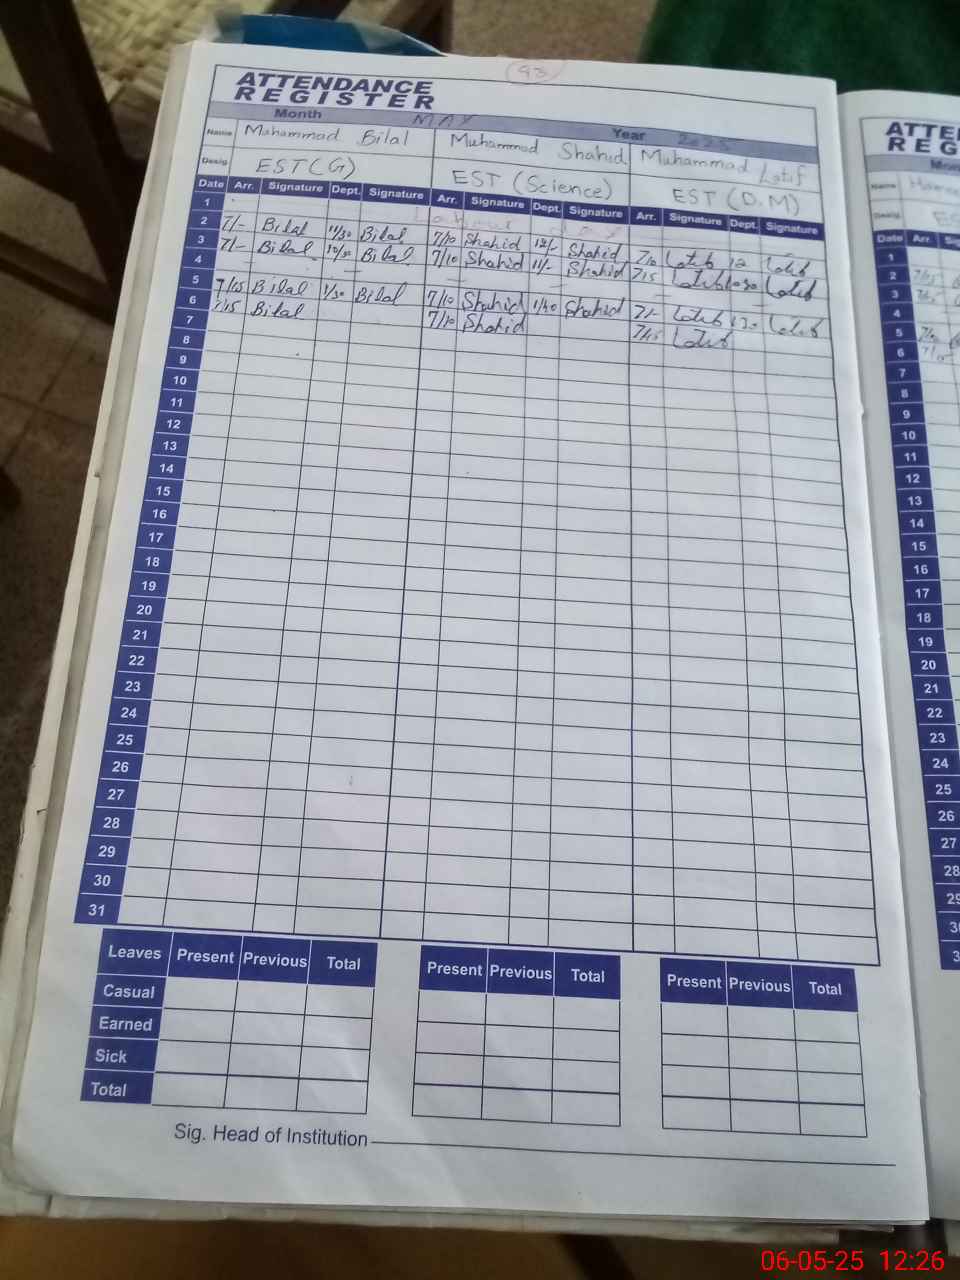 93
ATTENDANCE
REGISTER
Month MAY Year 2025
Name Mohammad Bilal Muhammad Shahid Muhammad Latif
Desig. EST (G) EST (Science) EST (D.M)
Date Arr. Signature Dept. Signature Arr. Signature Dept. Signature Arr. Signature Dept. Signature
1 Labour day
2 7/- Bilal 11/30 Bilal 7/10 Shahid 12/- Shahid 7/10 Latif 12 Latif
3 7/- Bilal 10/30 Bilal 7/10 Shahid 11/- Shahid 7/15 Latif 10/30 Latif
4 — — — — —
5 7/15 Bilal 1/30 Bilal 7/10 Shahid 1/30 Shahid 7/- Latif 1/30 Latif
6 7/15 Bilal 7/10 Shahid 7/15 Latif
7
8
9
10
11
12
13
14
15
16
17
18
19
20
21
22
23
24
25
26
27
28
29
30
31
Leaves Present Previous Total Present Previous Total Present Previous Total
Casual
Earned
Sick
Total
Sig. Head of Institution
ATTE
REG
Name
Desig.
Date Arr.
1
2 7/15
3
4
5
6
7
8
9
10
11
12
13
14
15
16
17
18
19
20
21
22
23
24
25
26
27
28
06-05-25 12:26